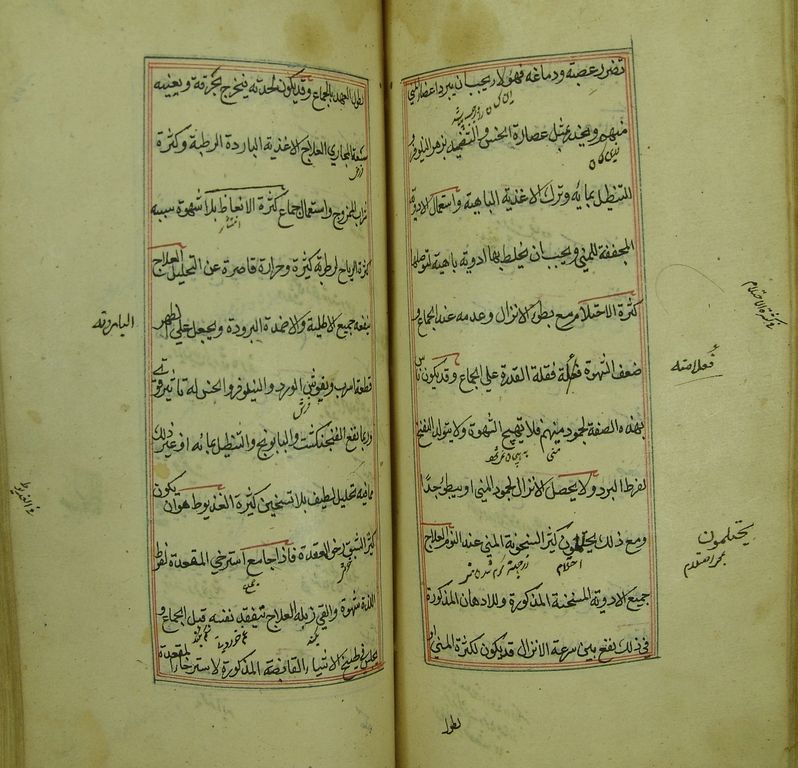 تضرر عصبه ودماغه فهولا ريجب ان يبرد اعضا المني
منهم ويخد بمثل عصارة الخس والتضميد بزهر النيلوفر و
التنطيل بمائه وترك الاغذية الباهية واستعمال الادوية
المجففة للمني ويجب ان يخلط بها ادوية باهية لتوصلها
كثرة الاحتلام مع بطؤ الانزال وعدمه عند الجماع و
ضعف الشهوة فقلة القدرة على الجماع وقد يكون ناس
بهذه الصفة لجمود منيهم فلا يهيج الشهوة ولا يتولد المنفخ
لفرط البرد ولا يحصل الانزال لجمود المني او يبطؤ جدا
ومع ذلك يحتلمون كثيرا لسخونة المني عند النوم العلاج
جميع الادوية المسخنة المذكورة والادهان المذكورة
في ذلك نفع بين سرعة الانزال قد يكون لكثرة المني او
كثرة الاحتلام
فعلامته
يحتلمون
احتلام
منى
لطول
لطول العهد بالجماع وقد يكون لحدته فيخرج بحرقة ويعينه
سعة المجاري العلاج الاغذية الباردة الرطبة وكثرة
شراب الممزوج واستعمال جماع كثرة الانعاظ بلا شهوة سببه
كثرة الرياح لرطوبة كثيرة وحرارة قاصرة عن التحليل العلاج
ينفعه جميع الاطلية والاضمدة المبرودة ويجعل على الظهر
قطعة اسرب ويفرش الورد والنيلوفر والخس له تاثير قوي
وربما نفع الفنجنكشت والبابونج والتنطيل بمائه او غير ذلك
مما فيه تحليل لطيف بلا تسخين كثيرة العذيوط هو ان يكون
كثير الشبق رخو المقعدة فاذا جامع استرخى المقعدة لفرط
اللذة شهوة والقي زبله العلاج تتفقد نفسه قبل الجماع و
جلس في طبيخ الاشياء القابضة المذكورة لاسترخاء المقعدة
انتشار